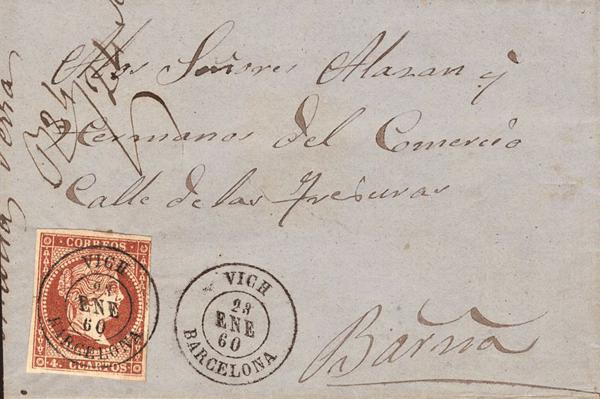 A los Señores Alaxan y
Hermanos del Comercio
Calle de las Tresuras
Barña
CORREOS
VICH
23
ENE
60
BARCELONA
4. CUARTOS
VICH
23
ENE
60
BARCELONA